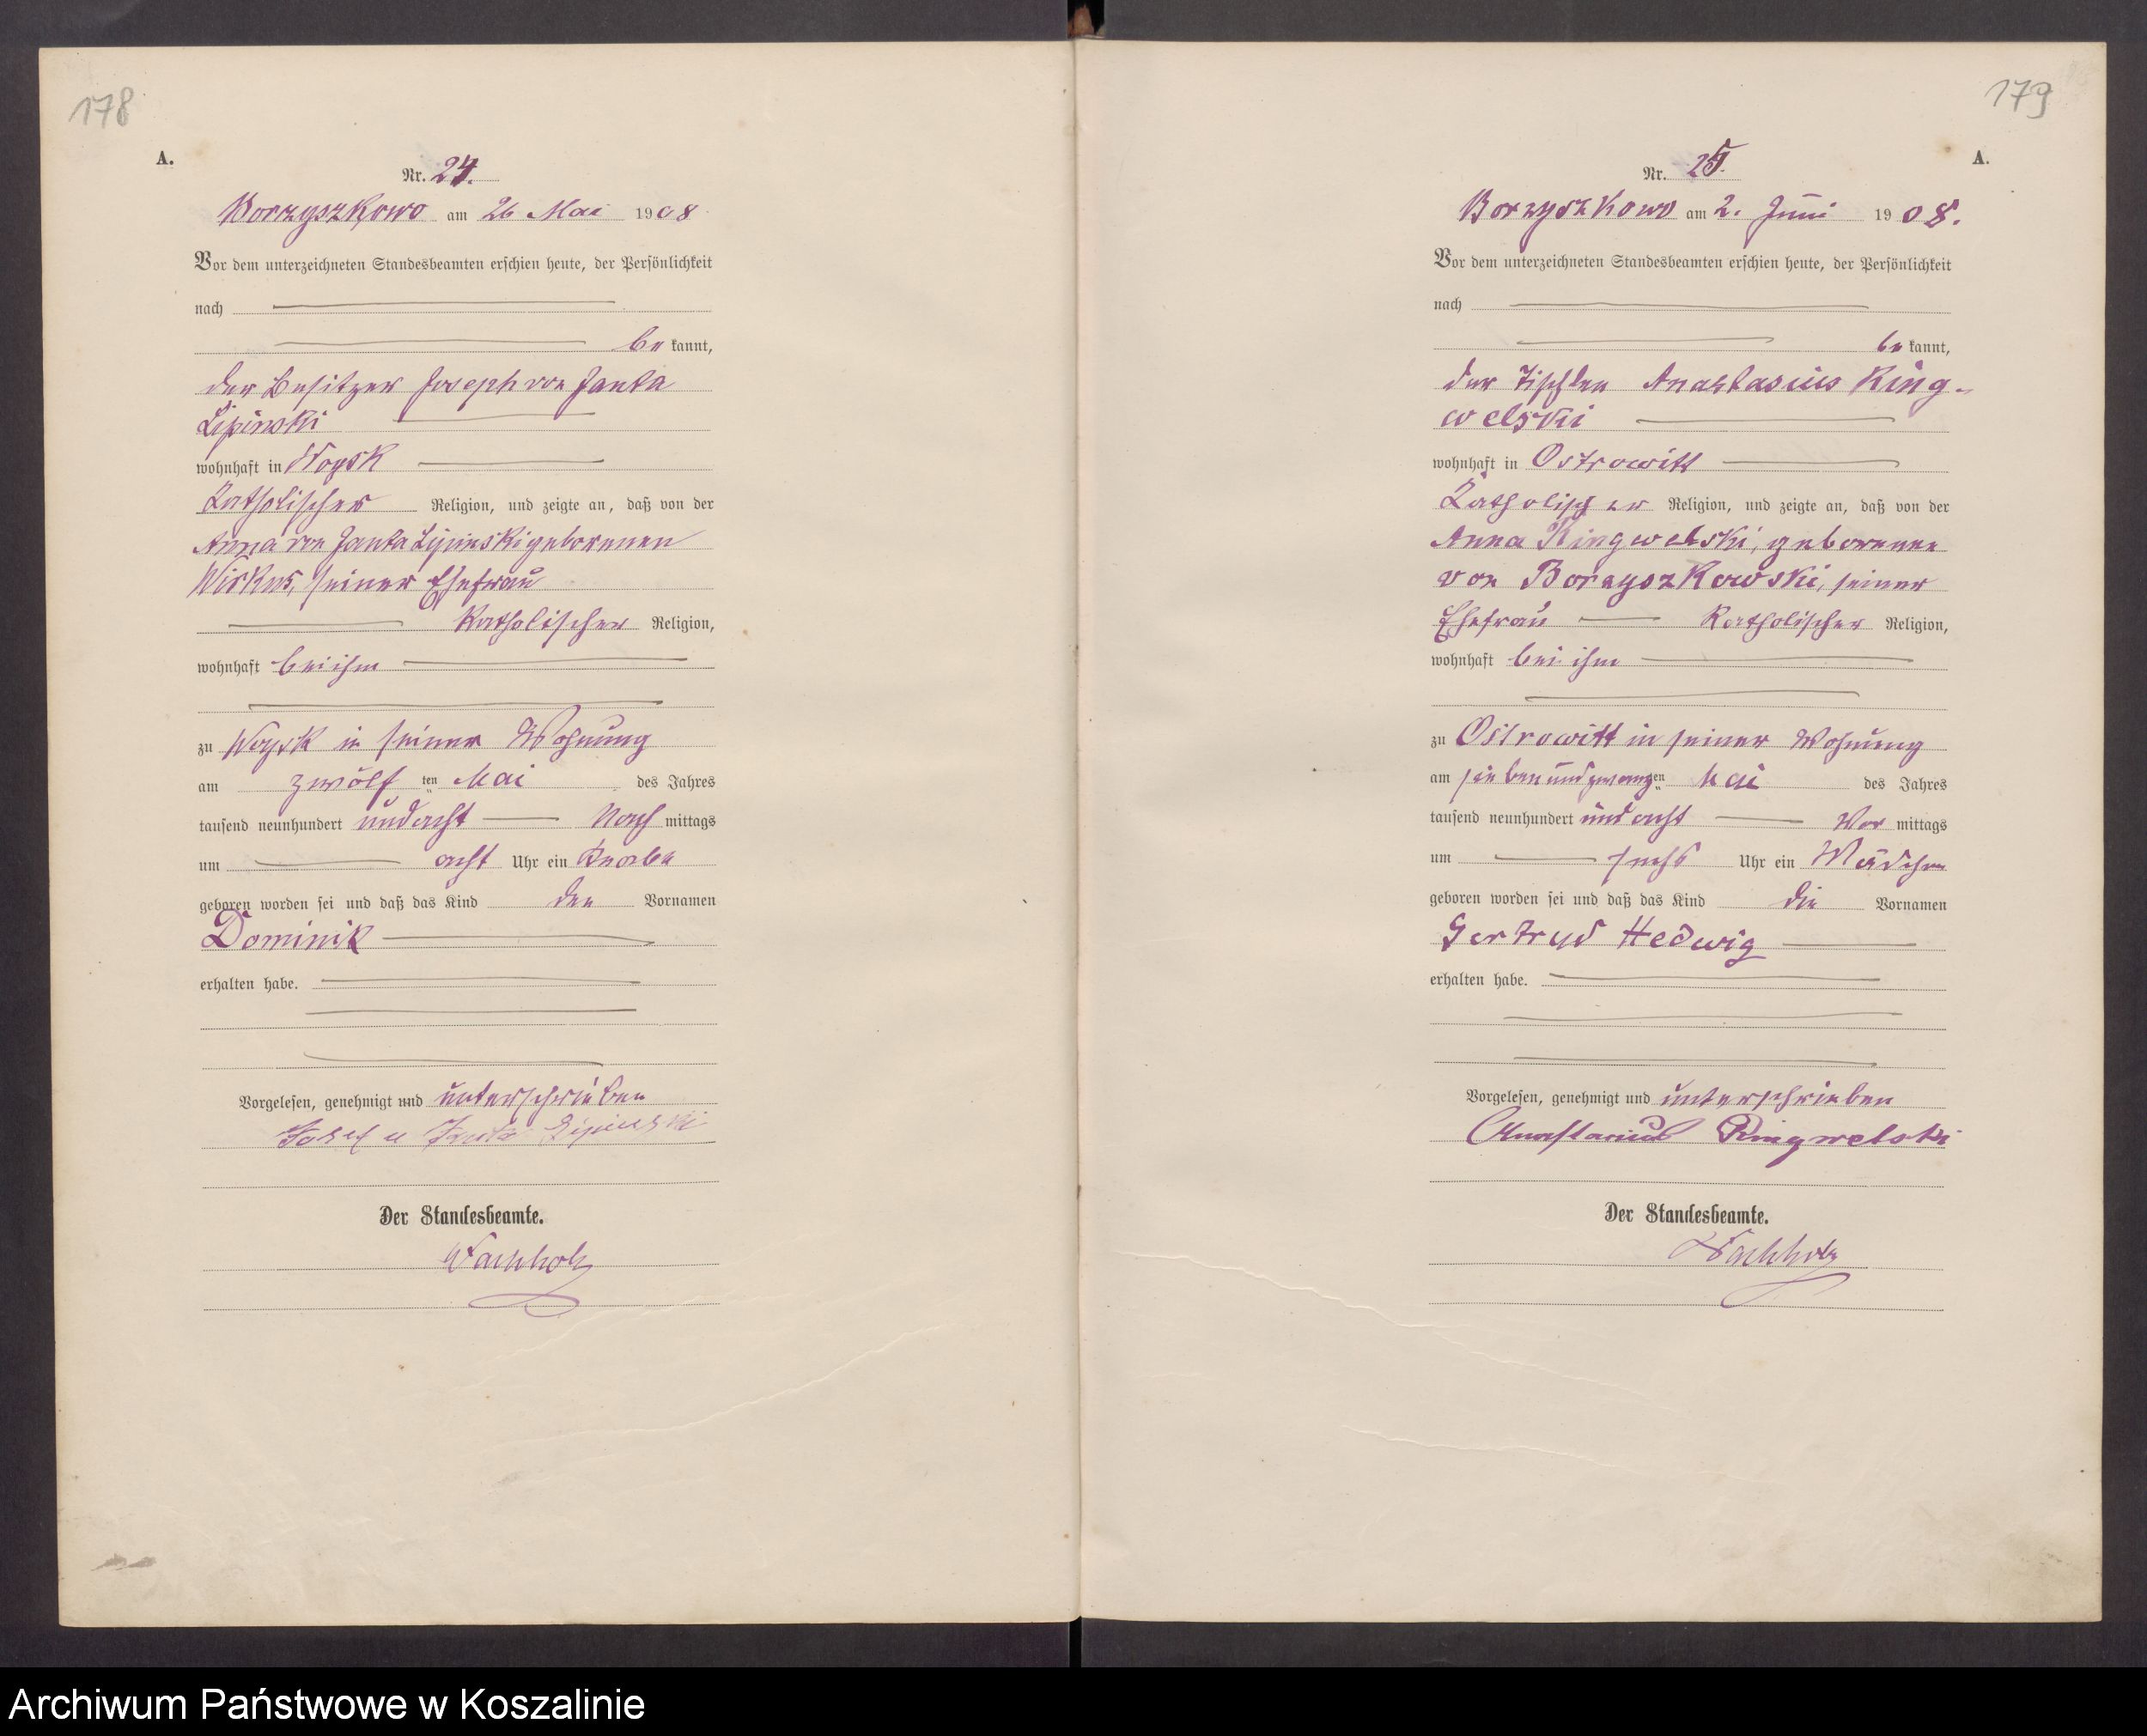 178
A.
Nr. 24.
Borzyszkowo am 26 Mai 1908
Vor dem unterzeichneten Standesbeamten erschien heute, der Persönlichkeit
nach
be kannt,
der Besitzer Joseph von Janta
Lipinski
wohnhaft in Woysk
Katholischer Religion, und zeigte an, daß von der
Anna von Janta Lipinski geborenen
Wirkus, seiner Ehefrau
Katholischer Religion,
wohnhaft bei ihm
zu Woysk in seiner Wohnung
am zwölf ten Mai des Jahres
tausend neunhundert und acht Nach mittags
um acht Uhr ein Knabe
geboren worden sei und daß das Kind den Vornamen
Dominik
erhalten habe.
Vorgelesen, genehmigt und unterschrieben
Josef v Janta Lipinski
Der Standesbeamte.
Wachholz
179
A.
Nr. 25.
Borzyszkowo am 2. Juni 1908.
Vor dem unterzeichneten Standesbeamten erschien heute, der Persönlichkeit
nach
be kannt,
der Tischler Anastasius Ring-
welski
wohnhaft in Ostrowitt
Katholischer Religion, und zeigte an, daß von der
Anna Ringwelski, geborenen
von Borzyszkowski, seiner
Ehefrau Katholischer Religion,
wohnhaft bei ihm
zu Ostrowitt in seiner Wohnung
am sieben und zwanzg ten Mai des Jahres
tausend neunhundert und acht Vor mittags
um sechs Uhr ein Mädchen
geboren worden sei und daß das Kind die Vornamen
Gertryd Hedwig
erhalten habe.
Vorgelesen, genehmigt und unterschrieben
Anastasius Ringwelski
Der Standesbeamte.
Wachholz
Archiwum Państwowe w Koszalinie